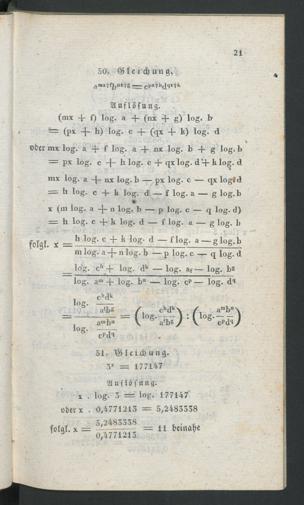 21
50. Gleichung.
a^{mx+f}b^{nx+g} = c^{px+h}d^{qx+k}
Auflösung.
(mx + f) log. a + (nx + g) log. b
= (px + h) log. c + (qx + k) log. d
oder mx log. a + f log. a + nx log. b + g log. b
= px log. c + h log. c + qx log. d + k log. d
mx log. a + nx log. b — px log. c — qx log. d
= h log. c + k log. d — f log. a — g log. b
x (m log. a + n log. b — p log. c — q log. d)
= h log. c + k log. d — f log. a — g log. b
folgl. x = \frac{h log. c + k log. d — f log. a — g log. b}{m log. a + n log. b — p log. c — q log. d}
= \frac{log. c^h + log. d^k — log. a^f — log. b^g}{log. a^m + log. b^n — log. c^p — log. d^q}
= \frac{log. \frac{c^h d^k}{a^f b^g}}{log. \frac{a^m b^n}{c^p d^q}} = (log. \frac{c^h d^k}{a^f b^g}) : (log. \frac{a^m b^n}{c^p d^q})
51. Gleichung.
3^x = 177147
Auflösung.
x . log. 3 = log. 177147
oder x . 0,4771213 = 5,2483338
folgl. x = \frac{5,2483338}{0,4771213} = 11 beinahe